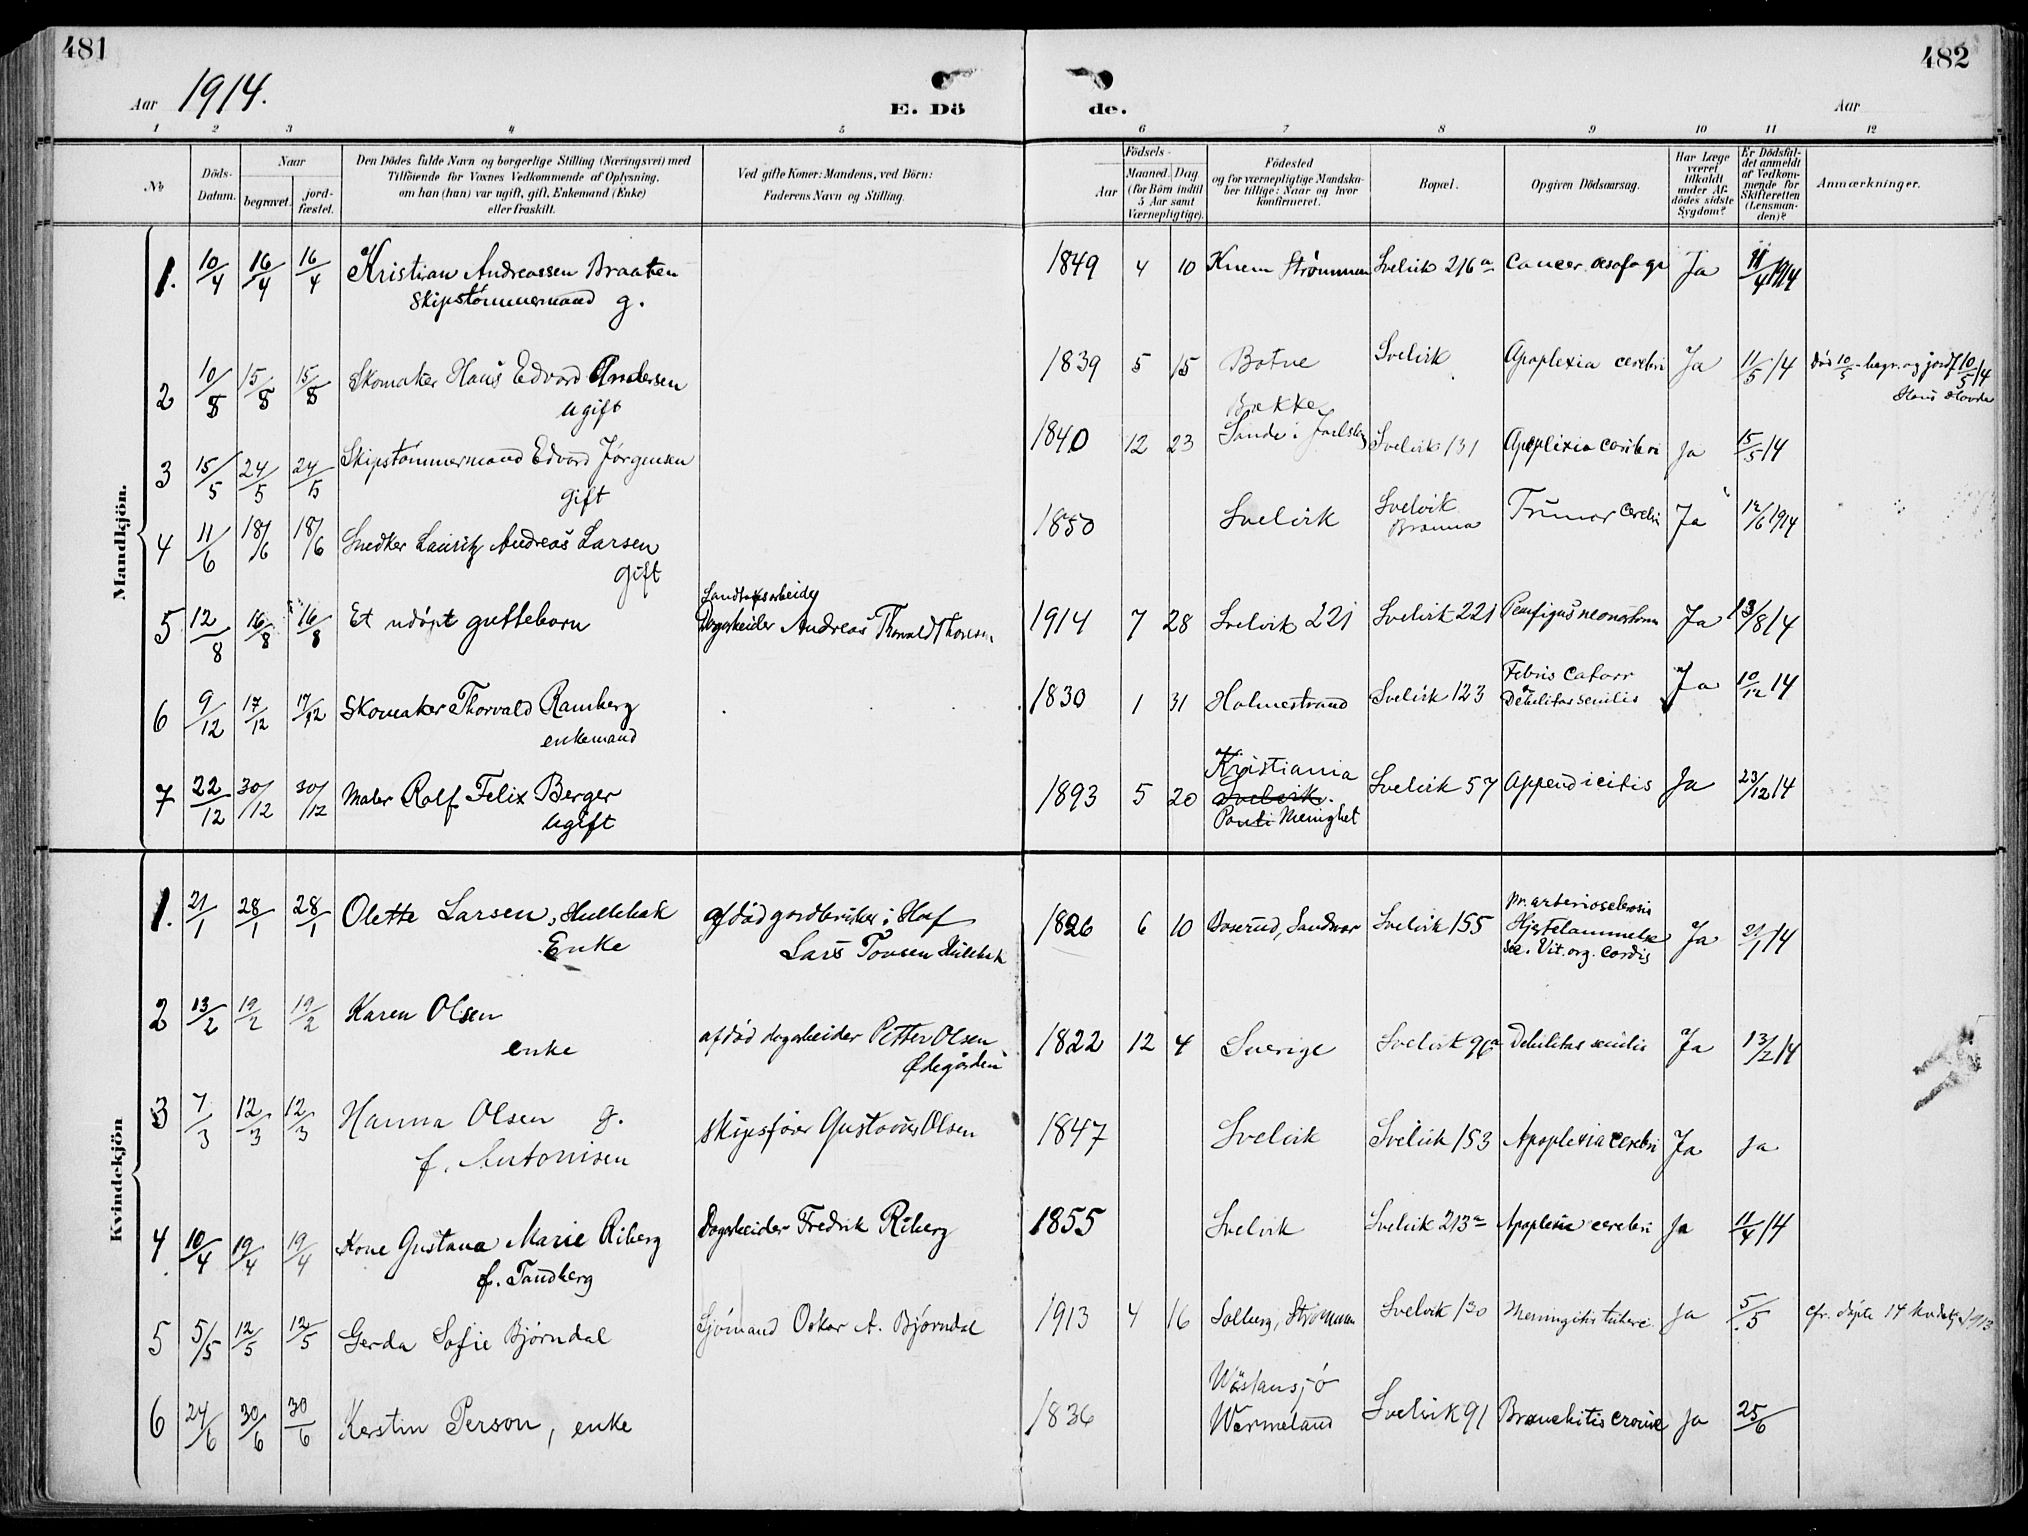 481
482
Aar 1914.
E. Dö
de.
Aar
1 2 3 4 5 6 7 8 9 10 11 12
No
Döds-
Datum.
Naar
begravet.
jord-
fæstet.
Den Dödes fulde Navn og borgerlige Stilling (Næringsvei) med
Tilföiende for Voxnes Vedkommende af Oplysning,
om han (hun) var ugift, gift, Enkemand (Enke)
eller fraskilt.
Ved gifte Koner: Mandens, ved Börn:
Faderens Navn og Stilling.
Födsels-
Aar
Maaned. Dag
(for Börn indtil
5 Aar samt
Værnepligtige).
Födested
og for værnepligtige Mandska-
ber tillige: Naar og hvor
konfirmeret.
Bopæl.
Opgiven Dödsaarsag.
Har Læge
været
tilkaldt
under Af-
dödes sidste
Sygdom?
Er Dödsfal-
det anmeldt
af Vedkom-
mende for
Skifteretten
(Lensman-
den)?
Anmærkninger.
Mandkjön.
1. 10/4 16/4 16/4 Kristian Andreassen Braaten 1849 4 10 Knem Strømmen Svelvik 216a Cancer. øsofagi Ja 11/4 1914
Skipstømmermand g.
2 10/5 15/5 15/5 Skomaker Hans Edvard Andersen 1839 5 15 Botne Svelvik Apoplexia cerebri Ja 11/5 14 Død 10/5 - begr. og jordf 10/5 14
ugift
Hans Hovde
3 15/5 24/5 24/5 Skipstømmermand Edvard Jørgensen 1840 12 23 Bakke Sande i Jarlsberg Svelvik 131 Apoplexia cerebri Ja 15/5 14
gift
4 11/6 18/6 18/6 Snedker Lauritz Andreas Larsen 1850 Svelvik Svelvik Cerebri Ja 12/6 1914
gift
5 12/8 16/8 16/8 Et udøpt guttebarn Dagarbeider Andreas 1914 7 28 Svelvik 221 Svelvik 221 Pemfigus neonatorum Ja 13/8 14
6 9/12 17/12 17/12 Skomaker Thorvald Ramberg 1830 1 31 Holmestrand Svelvik 123 Febris Catarr Debilitas senilis Ja 10/12 14
enkemand
7 22/12 30/12 30/12 Maler Rolf Felix Berger 1893 5 20 Kristiania Svelvik 57 Appendicitis Ja 23/12 14
ugift
Svelvik.
Menighet
Kvindekjön
1. 21/1 28/1 28/1 Olette Larsen, Hullebak afdød gardbruker i Hof 1826 6 10 Svelvik 155 arteriosclerosis Ja 21/1 14
Enke Lars
sec. Vit. org. cordis
2 13/2 19/2 19/2 Karen Olsen afdød dagarbeider Petter Olsen 1822 12 4 Sverige Svelvik 96a Debilitas senilis Ja 13/2 14
enke Ødegården
3 7/3 12/3 12/3 Hanna Olsen g. skipsfører Gustavus Olsen 1847 Svelvik Svelvik 153 Apoplexia cerebri Ja Ja
f. Antonisen
4 10/4 19/4 19/4 Kone Gustava Marie Riberg Dagarbeider Fredrik Riberg 1855 Svelvik Svelvik 213a Apoplexia cerebri Ja 11/4 14
f. Tandberg
5 5/5 12/5 12/5 Gerda Sofie Bjørndal Sjømand Oskar A. Bjørndal 1913 4 16 Solberg, Strømmen Svelvik 130 Meningitis tuberc. Ja 5/5 cfr. døpte 14 1913
6 24/6 30/6 30/6 Kerstin Person, enke 1836 Wästansjö Svelvik 91 Bronchitis Ja 25/6
Wermeland